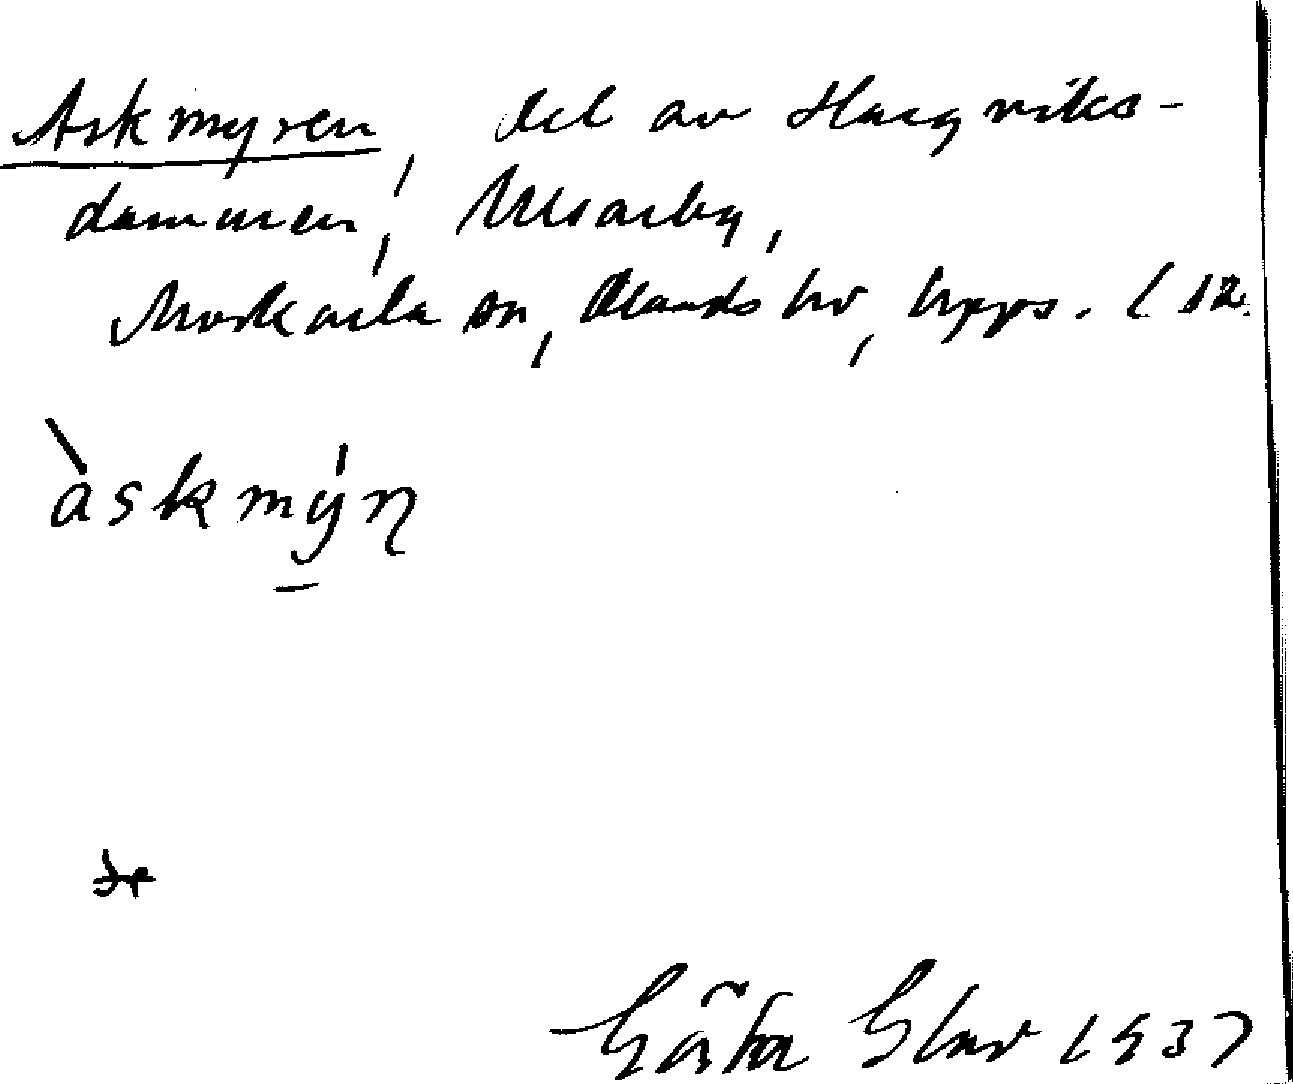 Askmyren, del av Hargviks-
dammen, Ulvsarby,
Morkarla sn, Olands hd, Upps. l 12.
àskmýn̥
Gösta Elav 1937